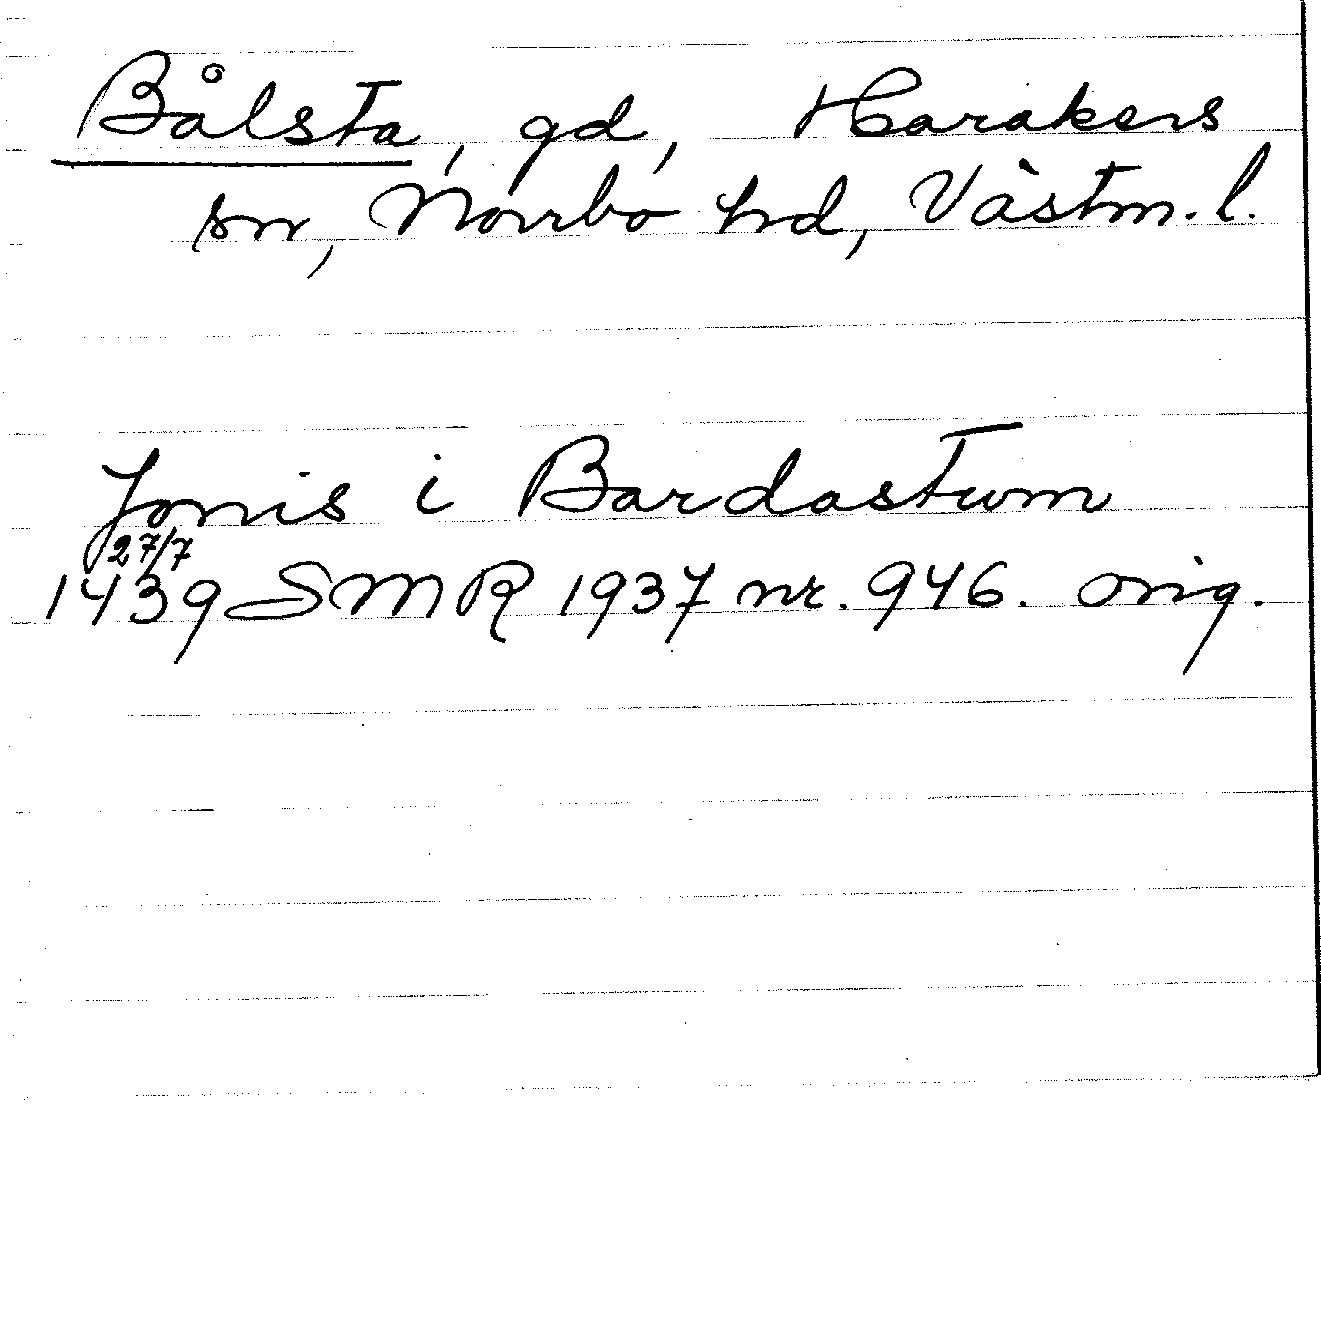 Bålsta, gd, Harakers
sn, Norrbo hd, Västm. l.
Jonis i Bardastum
27/7
1439 SMR 1937 nr. 946. orig.